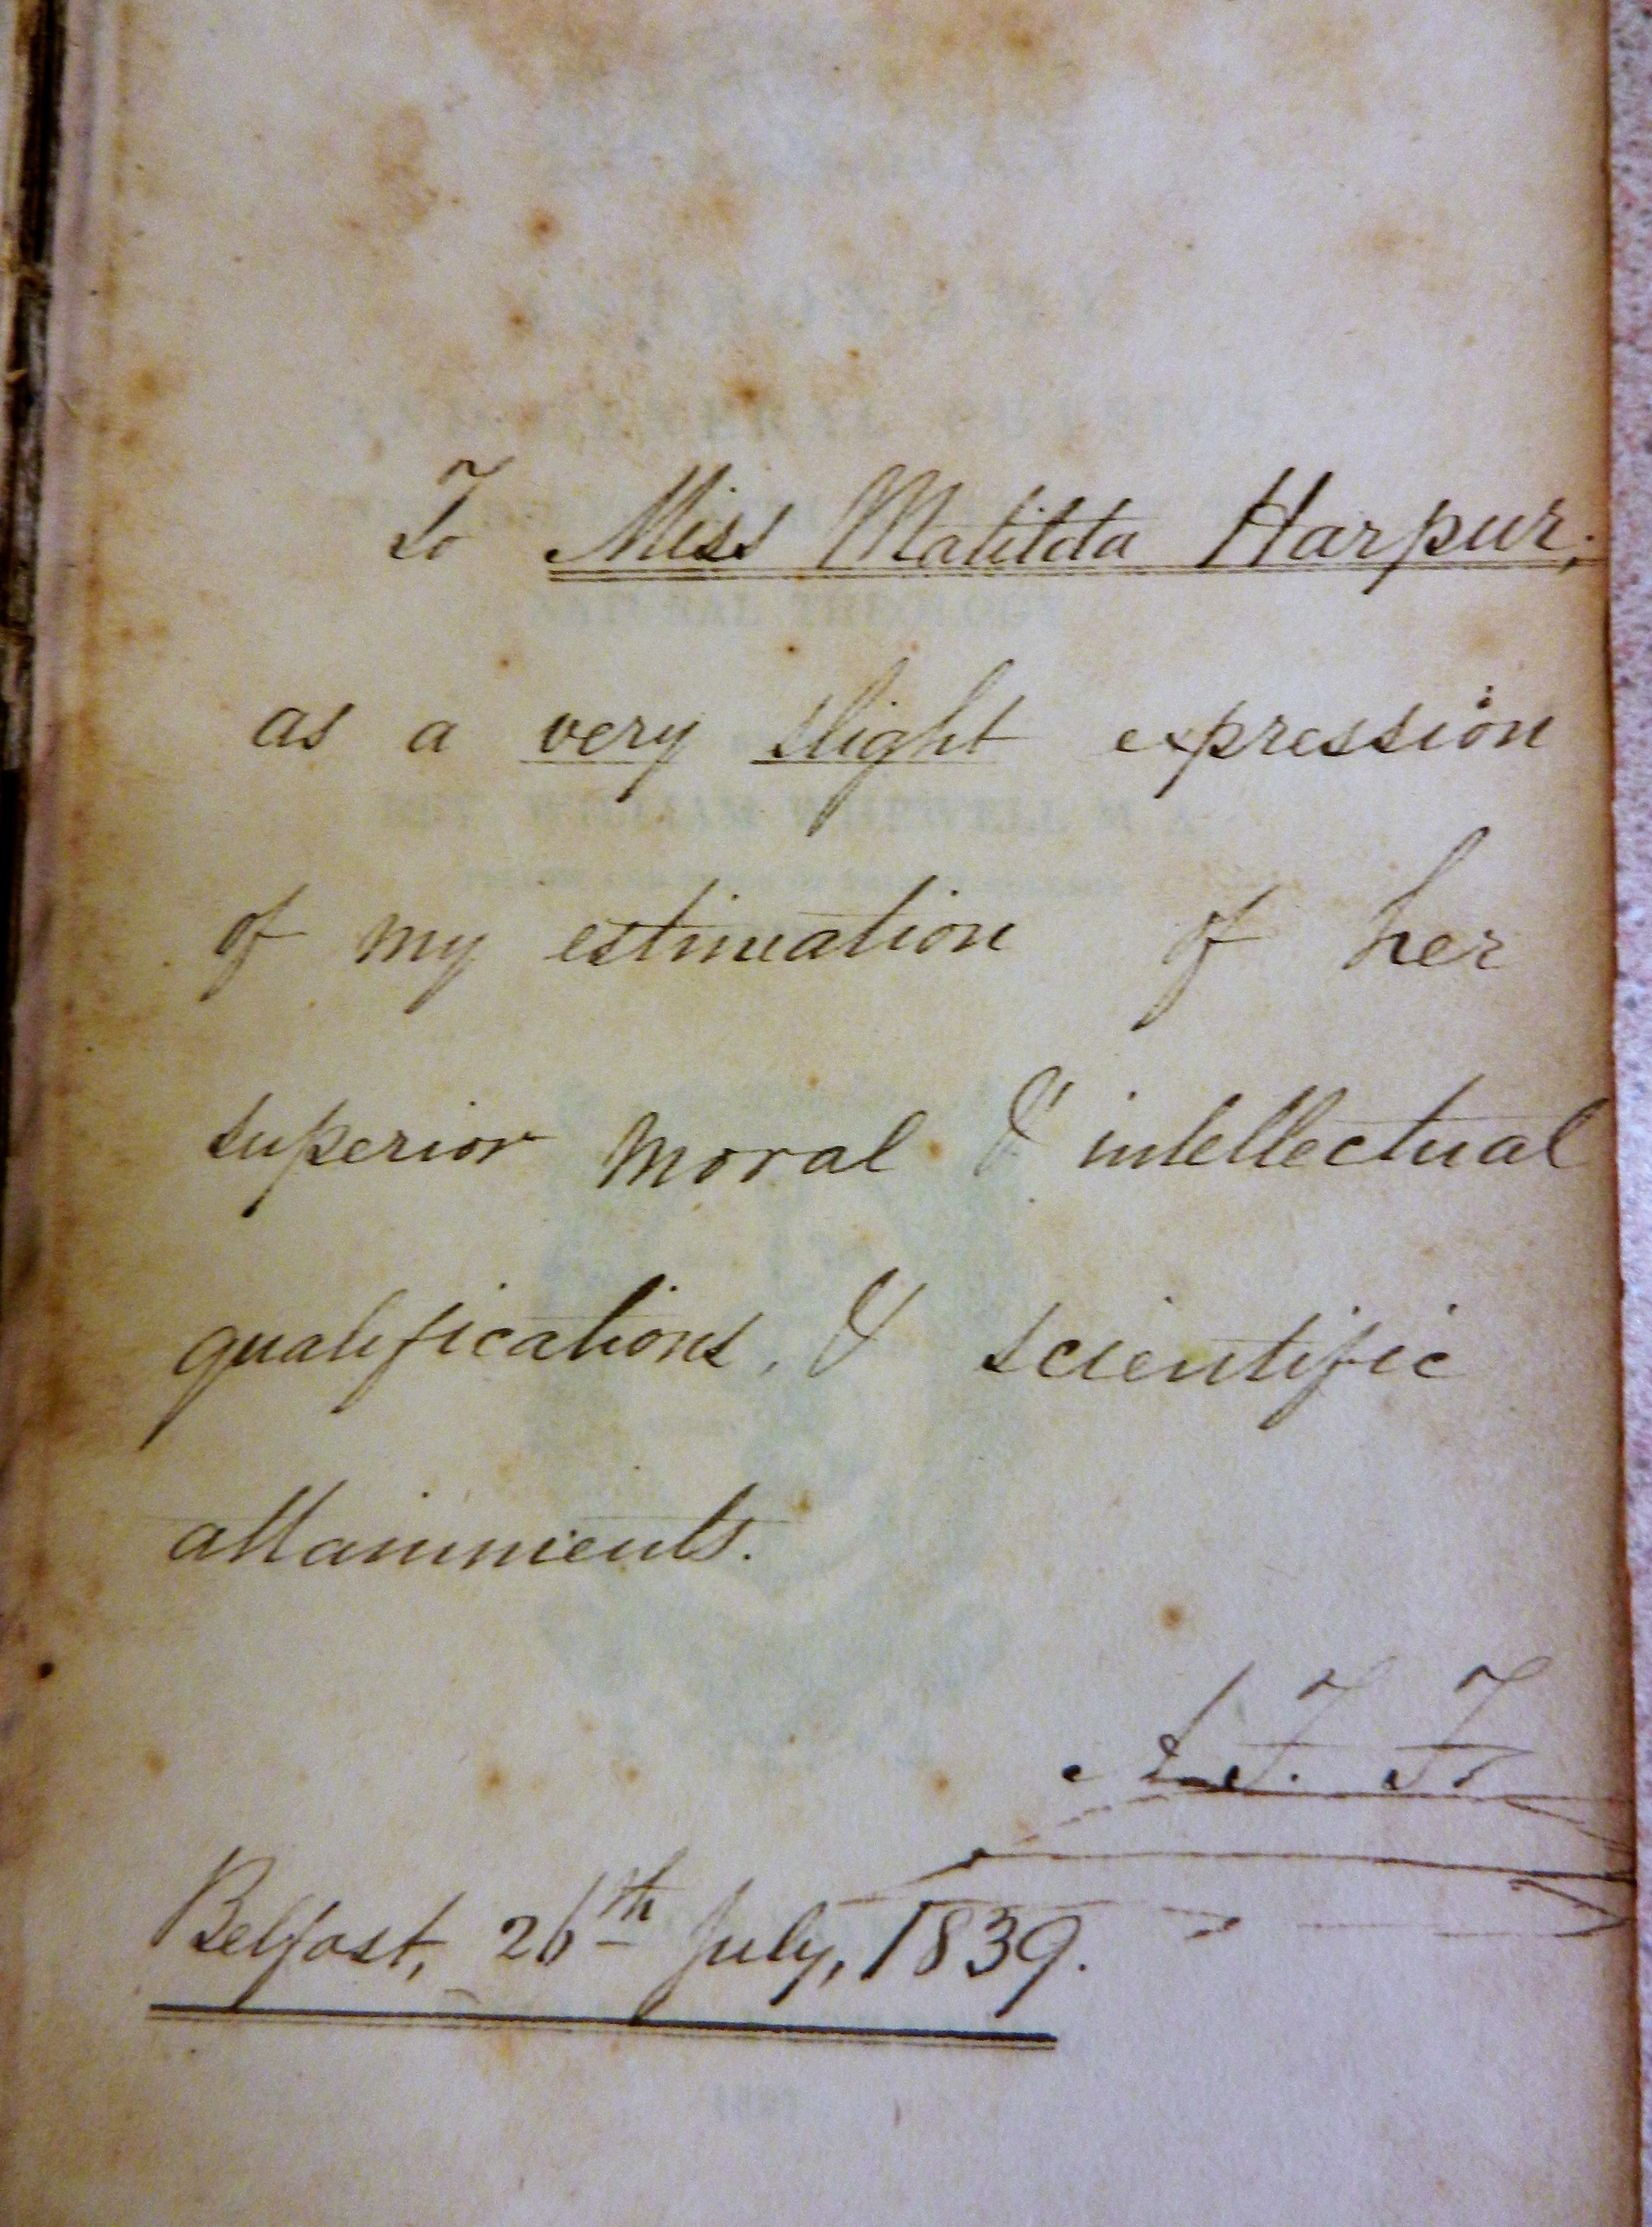 To Miss Matilda Harpur;
NATURAL THEOLOGY
as a very slight expression
REV. WILLIAM WHEWELL, M.A.
of my estimation of her
superior moral & intellectual
qualifications, & scientific
attainments.
Belfast, 26th July, 1839.